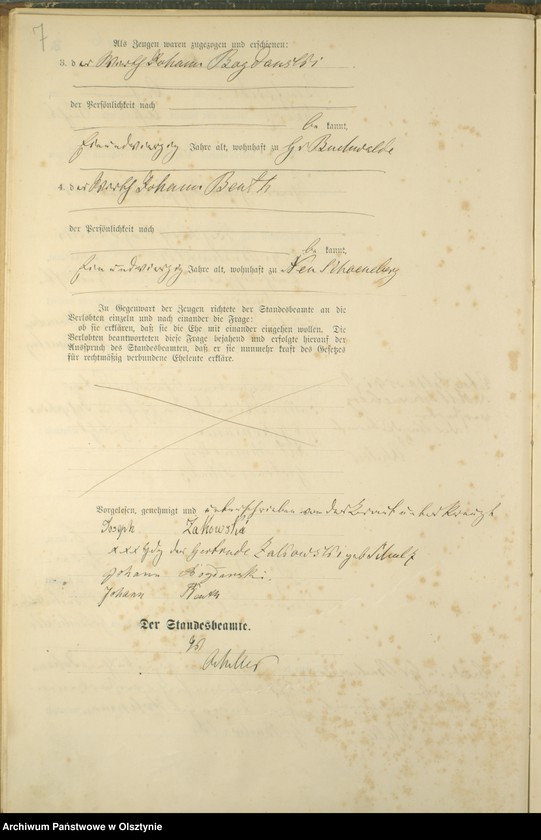 7
Als Zeugen waren zugezogen und erschienen:
3. der Wirth Johann Bogdanski
der Persönlichkeit nach
be kannt,
Einundvierzig Jahre alt, wohnhaft zu Gr Buchwalde
4. der Wirth Johann Benth
der Persönlichkeit nach
be kannt,
Einundvierzig Jahre alt, wohnhaft zu Neu Schoeneberg
In Gegenwart der Zeugen richtete der Standesbeamte an die
Verlobten einzeln und nach einander die Frage:
ob sie erklären, daß sie die Ehe mit einander eingehen wollen. Die
Verlobten beantworteten diese Frage bejahend und erfolgte hierauf der
Ausspruch des Standesbeamten, daß er sie nunmehr kraft des Gesetzes
für rechtmäßig verbundene Eheleute erkläre.
Vorgelesen, genehmigt und unterschrieben von der Braut unterkreuzt
Joseph Zakowski
xxx der Gertrude Zakowski geb Schulz
Johann Bogdanski
Johann
Der Standesbeamte.